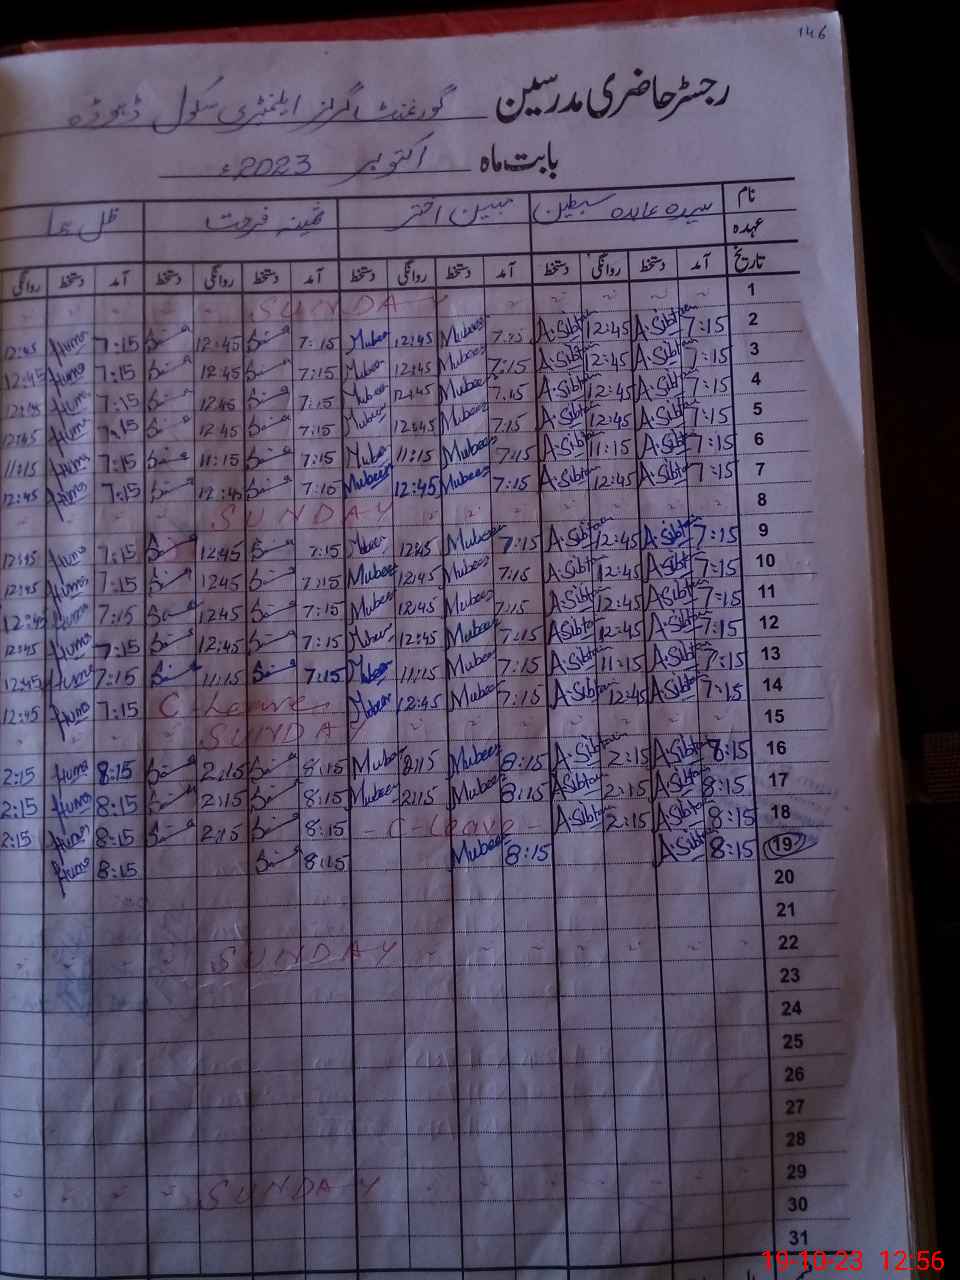 146
رجسٹر حاضری مدرسین گورنمنٹ گرلز ایلیمنٹری سکول
بابت ماہ اکتوبر 2023ء
نام سیدہ عابدہ سبطین مبین اختر ثمینہ فرحت ظل ہما
عہدہ
تاریخ آمد دستخط روانگی دستخط آمد دستخط روانگی دستخط آمد دستخط روانگی دستخط آمد دستخط روانگی
1 SUNDAY
2 7:15 A.Sibtain 12:45 A.Sibtain 7:15 Mubeen 12:45 Mubeen 7:15 12:45 7:15 Huma 12:45
3 7:15 A.Sibtain 12:45 A.Sibtain 7:15 Mubeen 12:45 Mubeen 7:15 12:45 7:15 Huma 12:45
4 7:15 A.Sibtain 12:45 A.Sibtain 7:15 Mubeen 12:45 Mubeen 7:15 12:45 7:15 Huma 12:45
5 7:15 A.Sibtain 12:45 A.Sibtain 7:15 Mubeen 12:45 Mubeen 7:15 12:45 7:15 Huma 12:45
6 7:15 A.Sibtain 11:15 A.Sibtain 7:15 Mubeen 11:15 Mubeen 7:15 11:15 7:15 Huma 11:15
7 7:15 A.Sibtain 12:45 A.Sibtain 7:15 Mubeen 12:45 Mubeen 7:15 12:45 7:15 Huma 12:45
8 SUNDAY
9 7:15 A.Sibtain 12:45 A.Sibtain 7:15 Mubeen 12:45 Mubeen 7:15 12:45 7:15 Huma 12:45
10 7:15 A.Sibtain 12:45 A.Sibtain 7:15 Mubeen 12:45 Mubeen 7:15 12:45 7:15 Huma 12:45
11 7:15 A.Sibtain 12:45 A.Sibtain 7:15 Mubeen 12:45 Mubeen 7:15 12:45 7:15 Huma 12:45
12 7:15 A.Sibtain 12:45 A.Sibtain 7:15 Mubeen 12:45 Mubeen 7:15 12:45 7:15 Huma 12:45
13 7:15 A.Sibtain 11:15 A.Sibtain 7:15 Mubeen 11:15 Mubeen 7:15 11:15 7:15 Huma 12:45
14 7:15 A.Sibtain 12:45 A.Sibtain 7:15 Mubeen 12:45 Mubeen C-Leave 7:15 Huma 12:45
15 SUNDAY
16 8:15 A.Sibtain 2:15 A.Sibtain 8:15 Mubeen 2:15 Mubeen 8:15 2:15 8:15 Huma 2:15
17 8:15 A.Sibtain 2:15 A.Sibtain 8:15 Mubeen 2:15 Mubeen 8:15 2:15 8:15 Huma 2:15
18 8:15 A.Sibtain 2:15 A.Sibtain - C-Leave - 8:15 2:15 8:15 Huma 2:15
19 8:15 A.Sibtain 8:15 Mubeen 8:15 8:15 Huma
20
21
22 SUNDAY
23
24
25
26
27
28
29 SUNDAY
30
31
19-10-23 12:56